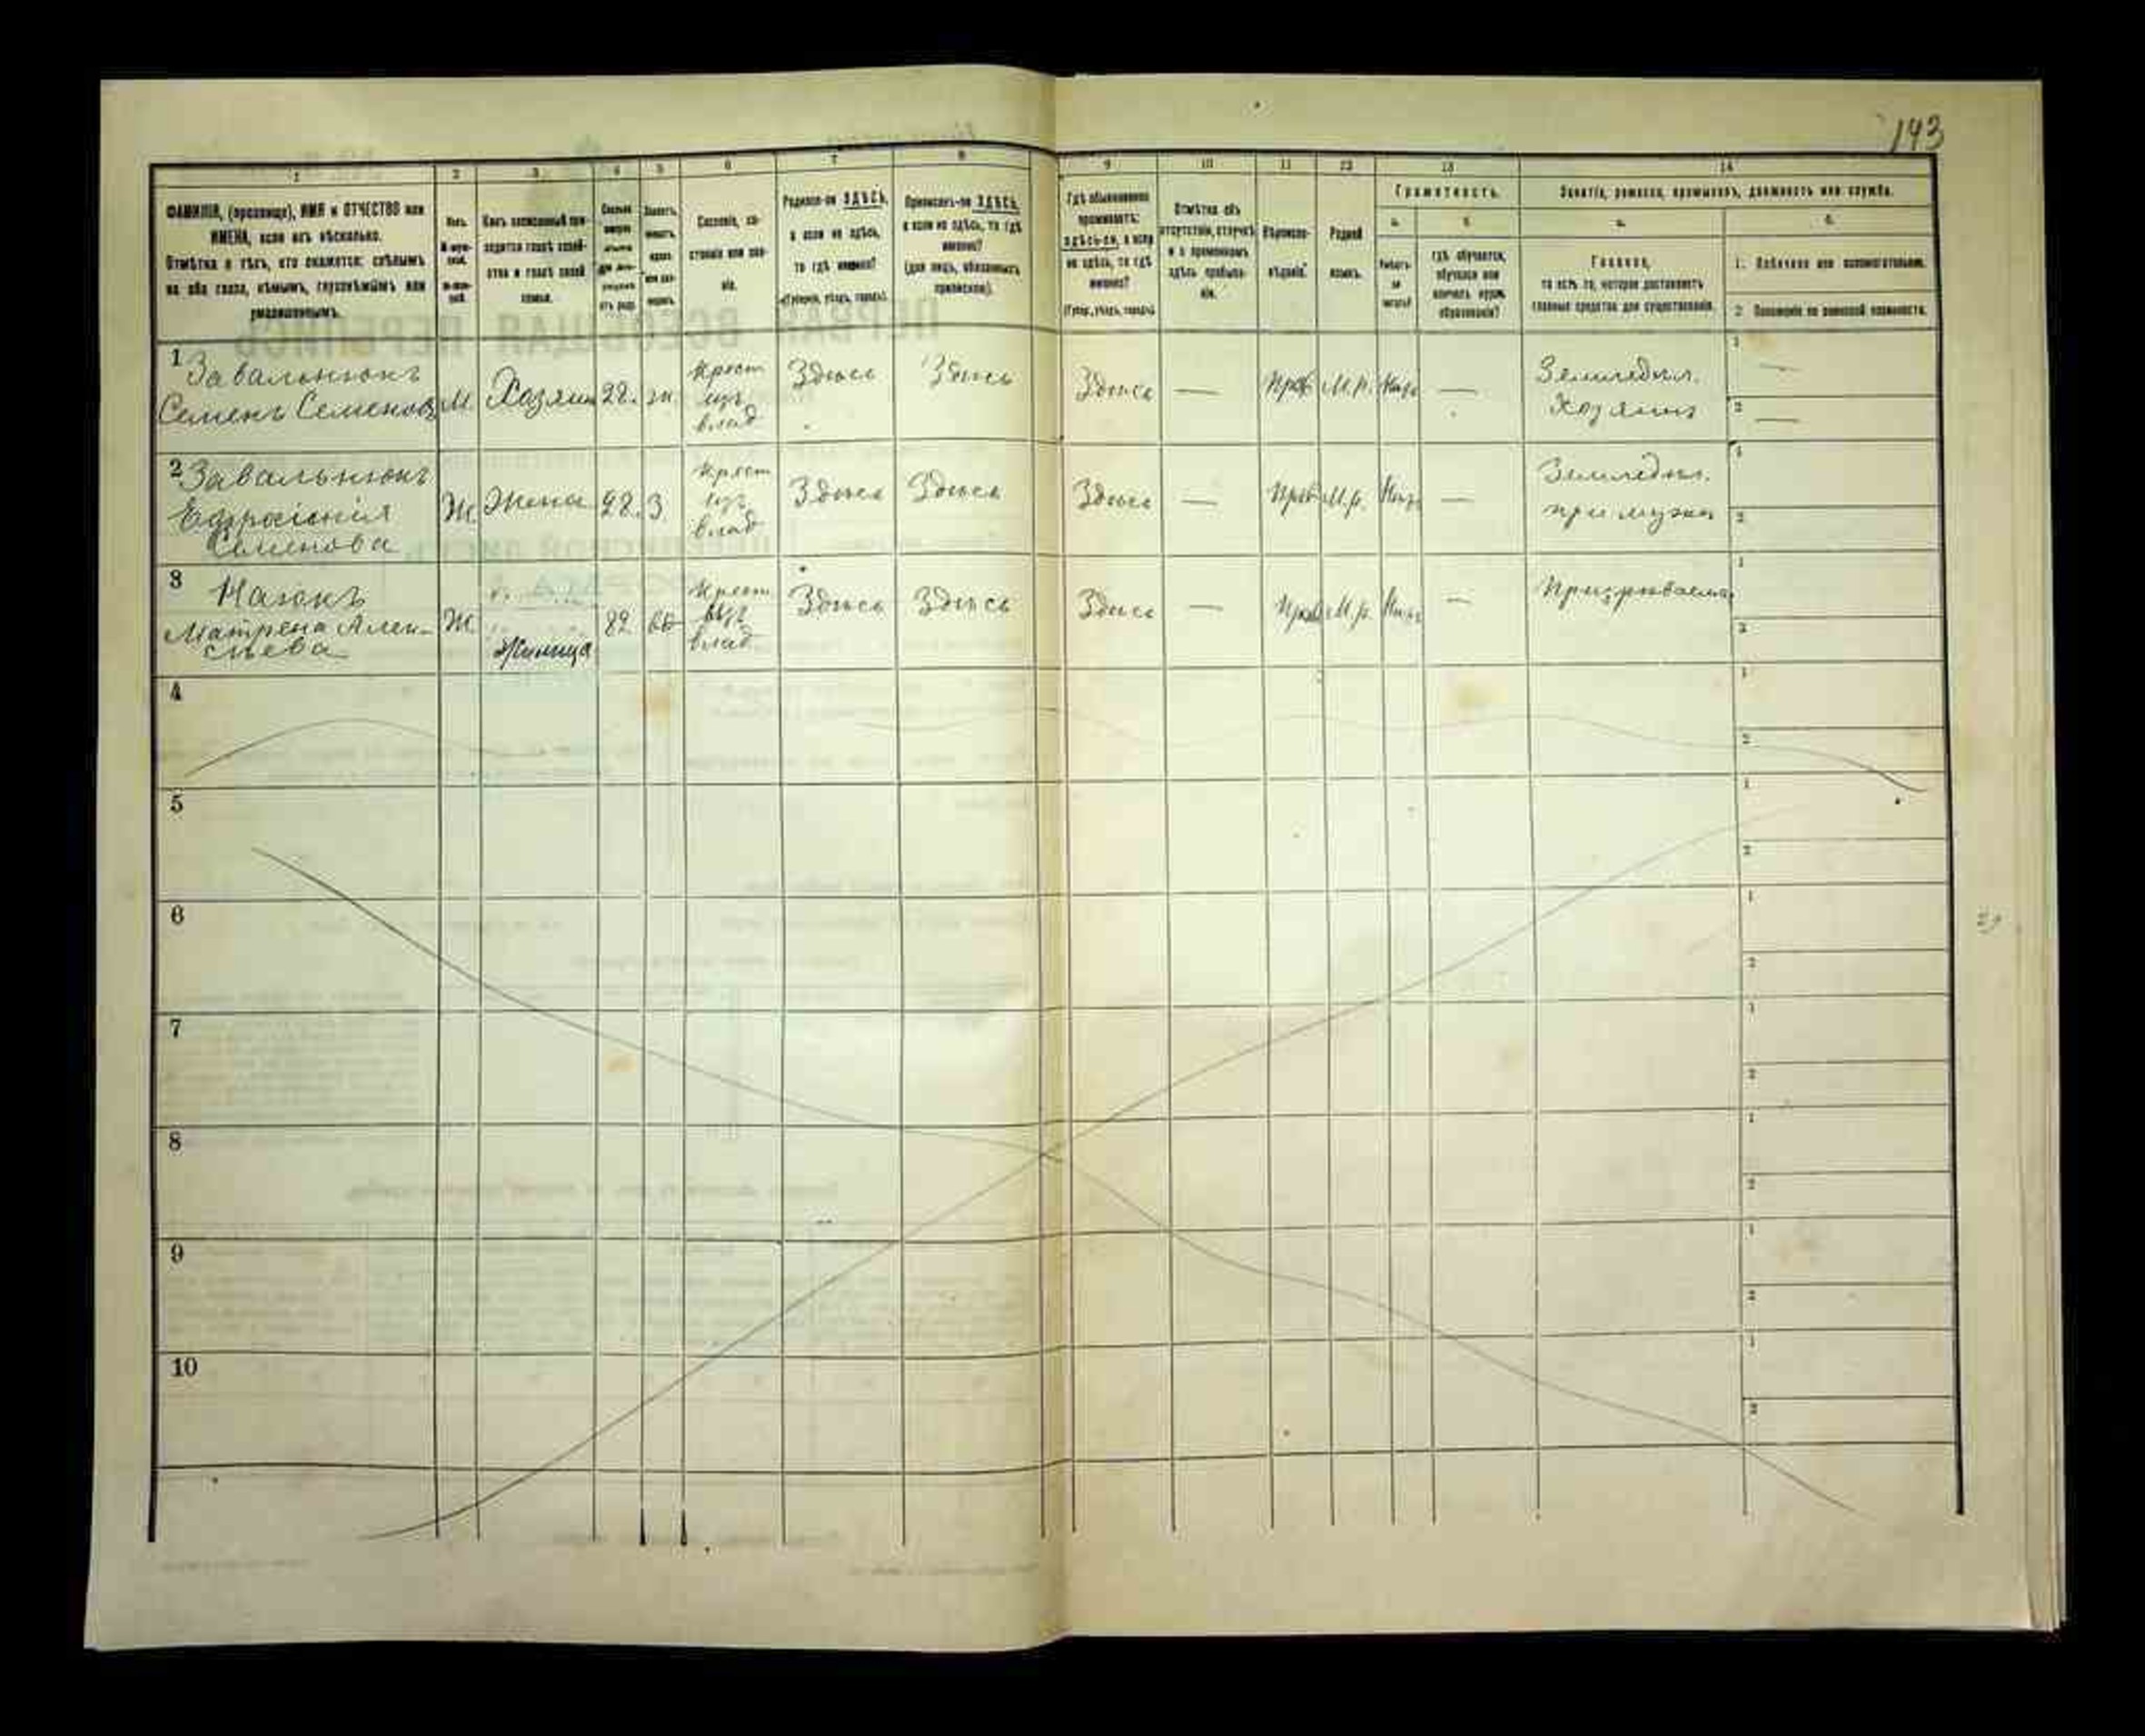 143
1 2 3 4 5 6 7 8 9 10 11 12 13 14
ФАМИЛІЯ, (прозвище), ИМЯ и ОТЧЕСТВО или
ИМЕНА, если ихъ нѣсколько.
Отмѣтка о тѣхъ, кто окажется: слѣпымъ
на оба глаза, нѣмымъ, глухонѣмымъ или
умалишеннымъ.
Полъ.
Какъ записанный при-
ходится главѣ хозяй-
ства и главѣ своей
семьи.
Сословіе, со-
стояніе или зва-
ніе.
Родился-ли ЗДѢСЬ,
а если не здѣсь,
то гдѣ именно?
(Губернія, уѣздъ, городъ).
Приписанъ-ли ЗДѢСЬ,
а если не здѣсь, то гдѣ
именно?
(для лицъ, обязанныхъ
припиской).
Гдѣ обыкновенно
проживаетъ:
здѣсь-ли, а если
не здѣсь, то гдѣ
именно?
(Губер., уѣздъ, городъ).
Отмѣтка объ
отсутствіи, отлучкѣ
и о временномъ
здѣсь пребыва-
ніи.
Вѣроиспо-
вѣданіе.
Родной
языкъ.
Грамотность.
а. б.
Умѣетъ
ли
читать?
гдѣ обучается,
обучался или
кончилъ курсъ
образованія?
Занятіе, ремесло, промыселъ, должность или служба.
а. б.
Главное,
то есть то, которое доставляетъ
главныя средства для существованія.
1. Побочное или вспомогательное.
2. Положеніе по воинской повинности.
1 Завальнюкъ
Семенъ Семеновъ
М. Хозяин 28. ж. крест из влад Здѣсь Здѣсь Здѣсь — Прав М.р. —
Земледѣл.
Хозяинъ
1 —
2 —
2 Завальнюкъ
Ефросинія
Семенова
Ж Жена 28. З. крест из влад Здѣсь Здѣсь Здѣсь — Прав М.р. —
Земледѣл.
при мужѣ
1
2
3 Наюкъ
Матрена Алек-
сѣева
Ж Жилица 82 вд крест влад Здѣсь Здѣсь Здѣсь — Прав М.р. —
Призрѣваема
1
2
4 1
2
5 1
2
6 1
2
7 1
2
8 1
2
9 1
2
10 1
2